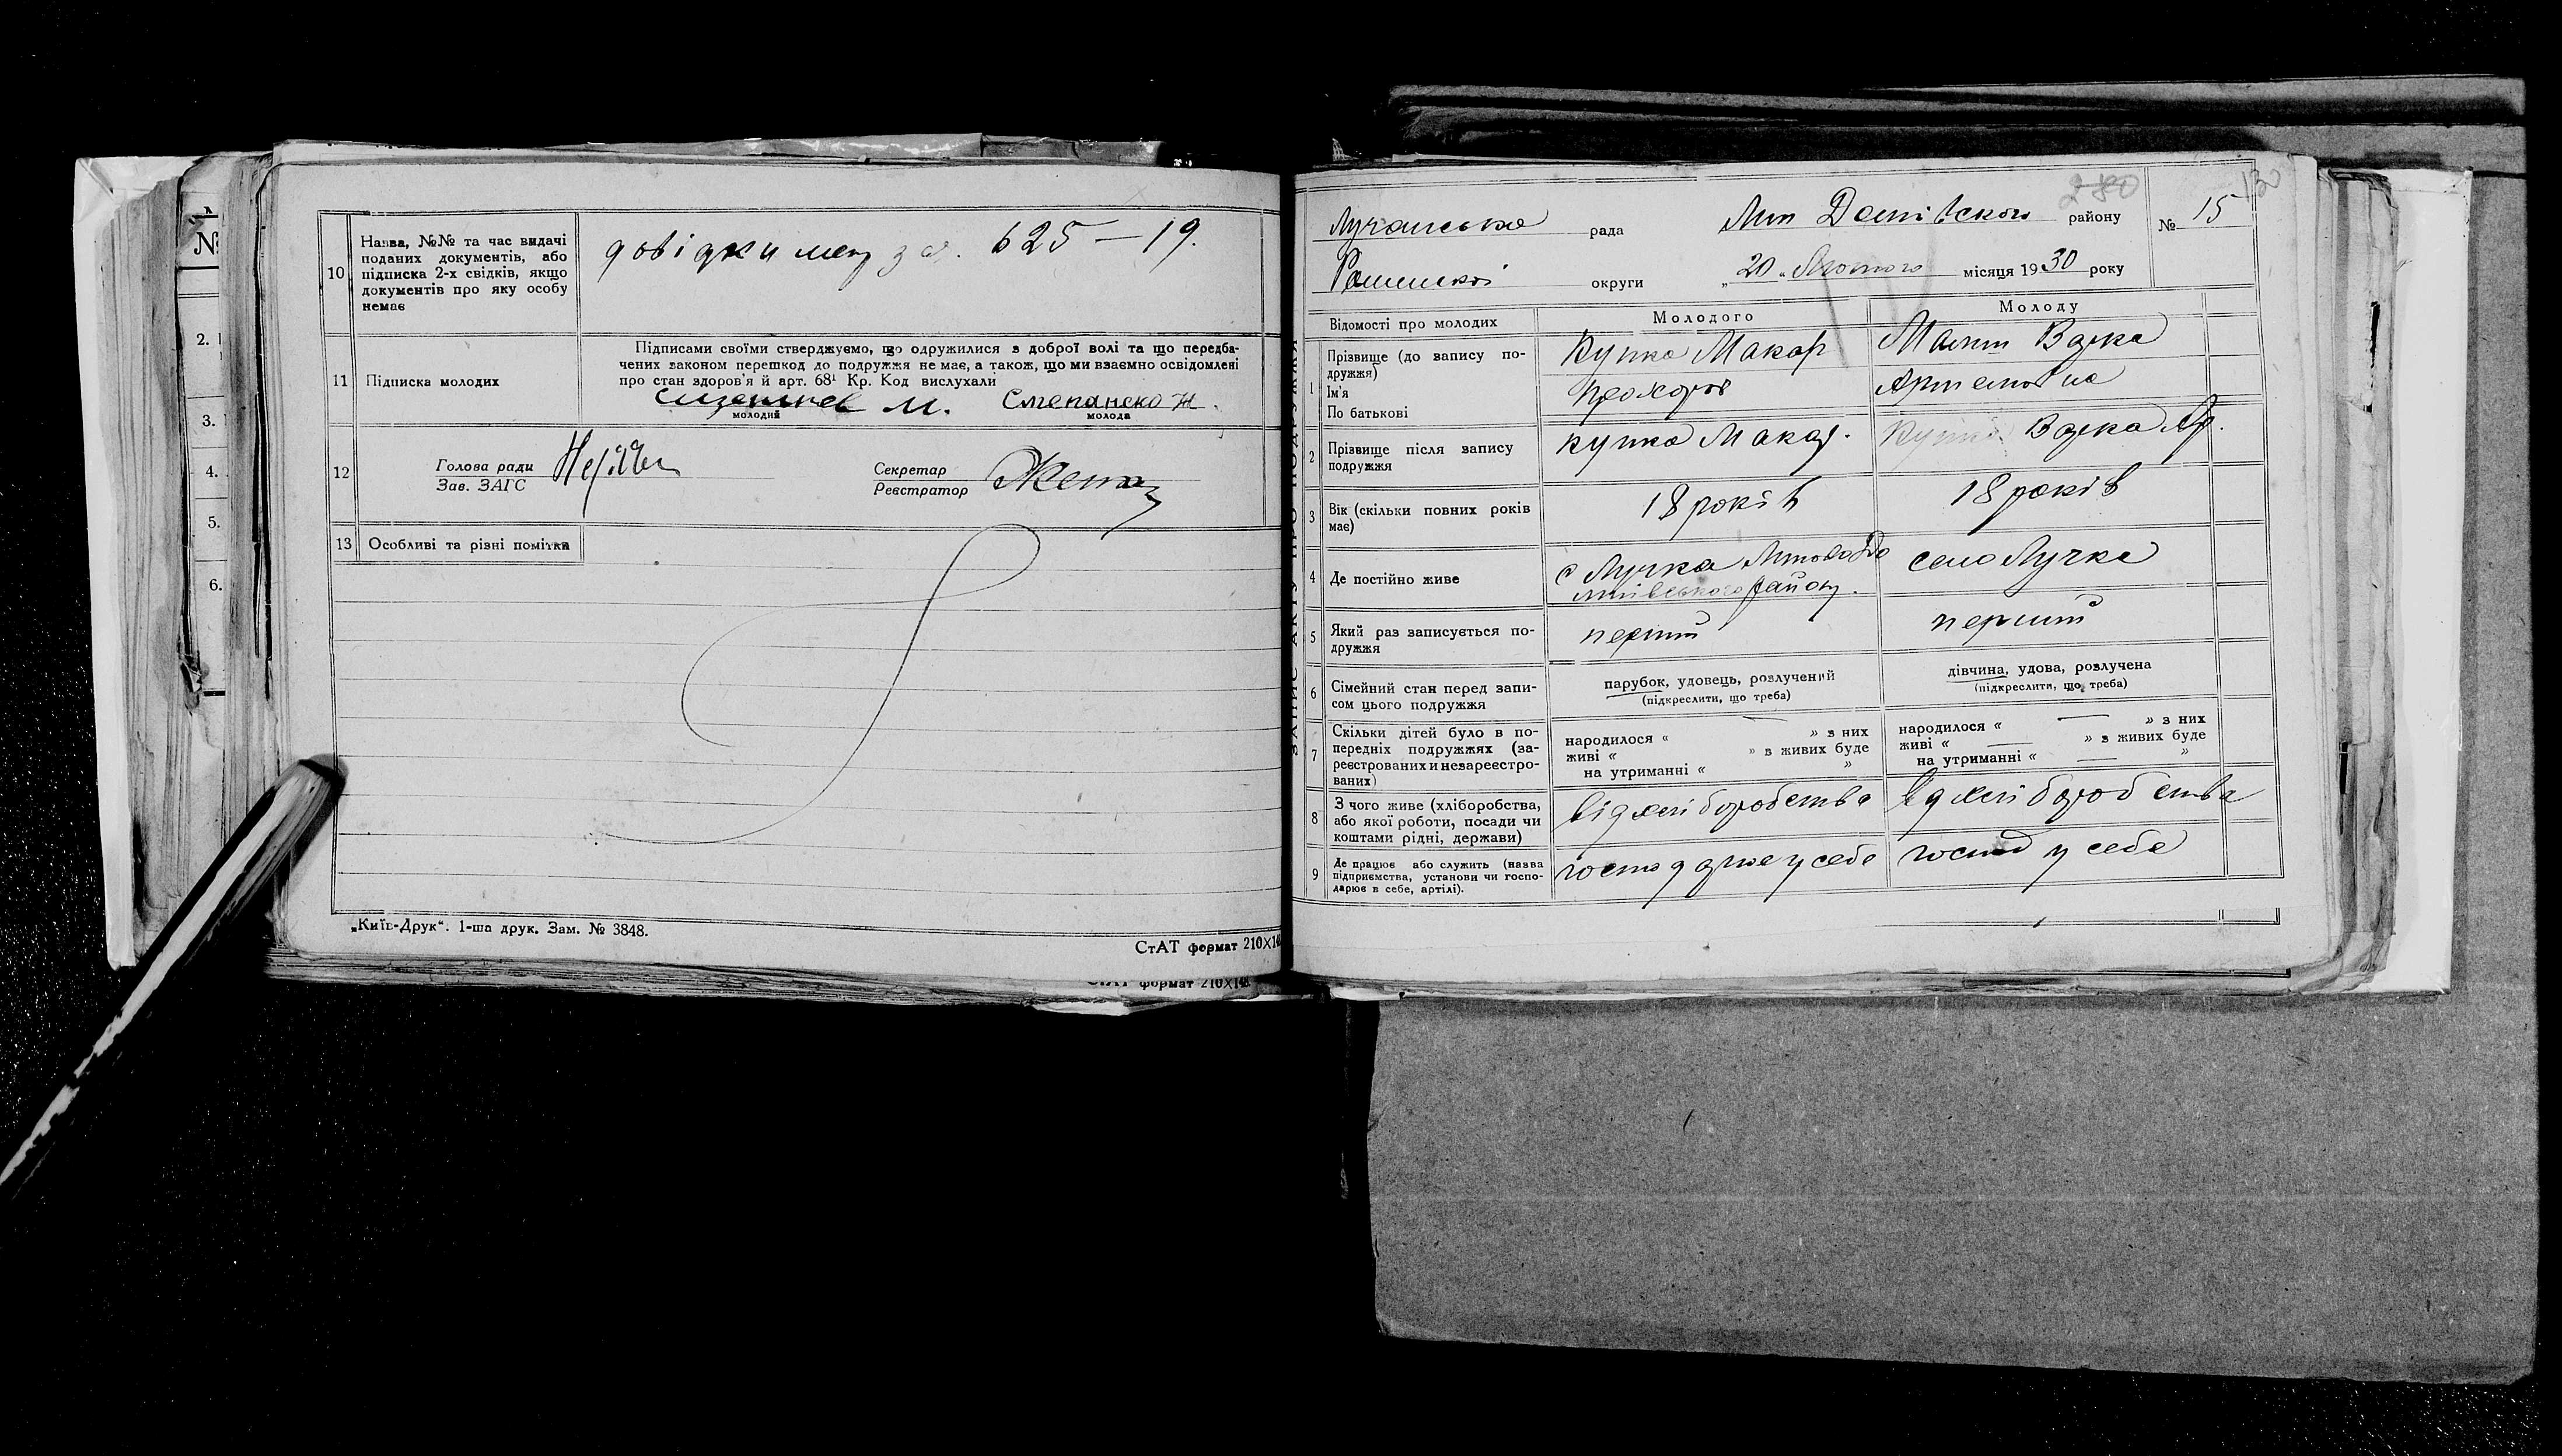 10
Назва, №№ та час видачі
поданих документів, або
підписка 2-х свідків, якщо
документів про яку особу
немає
довідки 625 — 19.
11
Підписка молодих
Підписами своїми стверджуємо, що одружилися з доброї волі та що передба-
чених законом перешкод до подружжя не має, а також, що ми взаємно освідомлені
про стан здоров'я й арт. 68¹ Кр. Код вислухали
М. Степанеко
молодий молода
12
Голова ради
Зав. ЗАГС
Секретар
Реєстратор
13 Особливі та різні помітки
„Київ-Друк“. 1-ша друк. Зам. № 3848.
СтАТ формат 210×14
формат 210×148
№
2.
3.
4.
5.
6.
280
130
Лучанська рада району № 15
округи „20„ Лютого місяця 1930 року
ЗАПИС АКТУ ПРО ПОДРУЖЖЯ
Відомості про молодих Молодого Молоду
1
Прізвище (до запису по-
дружжя)
Ім'я
По батькові
Купка Макар
Прохоров
Артемовна
2
Прізвище після запису
подружжя
Купка Макар.
3
Вік (скільки повних років
має)
18 років 18 років
4 Де постійно живе
с Лучка
району.
село Лучка
5
Який раз записується по-
дружжя
перший перший
6
Сімейний стан перед запи-
сом цього подружжя
парубок, удовець, розлучений
(підкреслити, що треба)
дівчина, удова, розлучена
(підкреслити, що треба)
7
Скільки дітей було в по-
передніх подружжях (за-
реєстрованих и незареєстро-
ваних)
народилося « » з них
живі « » з живих буде
на утриманні « »
народилося « — » з них
живі « — » з живих буде
на утриманні « — »
8
З чого живе (хліборобства,
або якої роботи, посади чи
коштами рідні, держави)
від хліборобства
від хліборобства
9
Де працює або служить (назва
підприємства, установи чи госпо-
дарює в себе, артілі).
господарює у себе
господ у себе